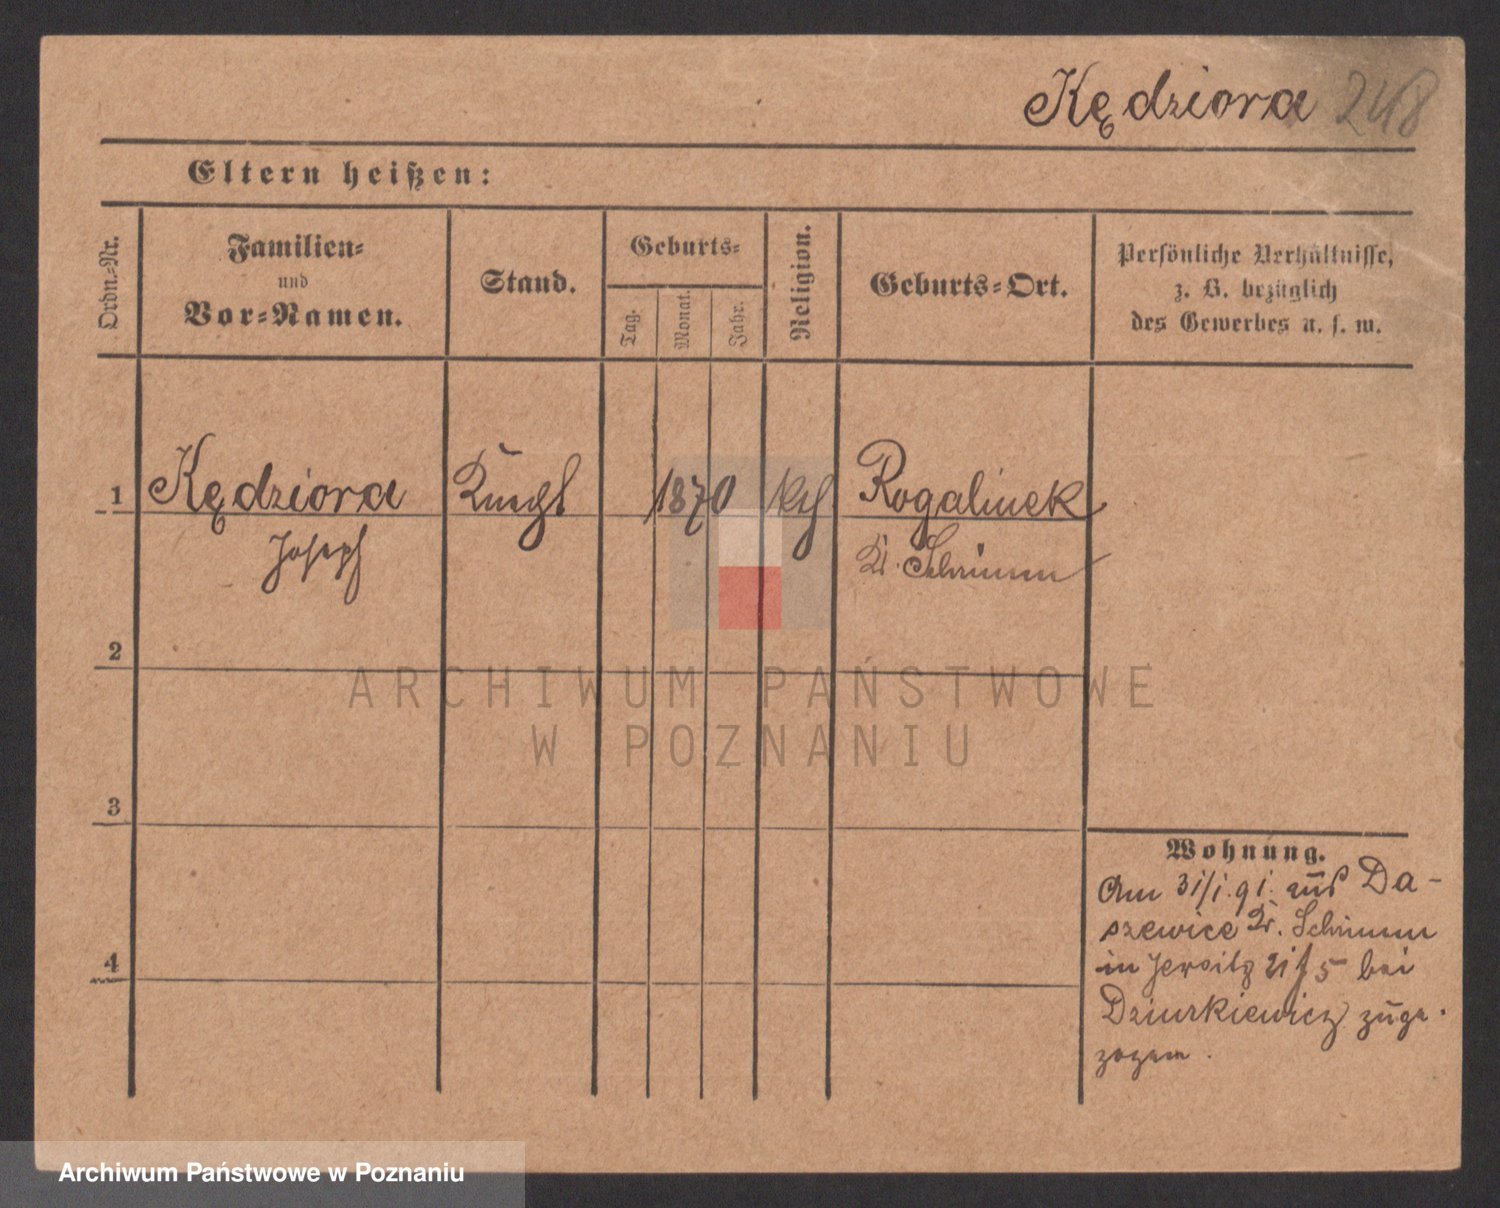 Kędziora 248
Eltern heißen:
Ordn.=Nr.
Familien=
und
Vor=Namen.
Stand.
Geburts=
Tag.
Monat.
Jahr.
Religion.
Geburts=Ort.
Persönliche Verhältnisse,
z. B. bezüglich
des Gewerbes u. s. w.
1 Kędziora Knecht 1870 kth Rogalinek
Joseph Kr. Schrimm
2
3
4
Wohnung.
Am 31/1.91. aus Da-
szewice Kr. Schrimm
in Jersitz bei
Dziurkiewicz zuge-
zogen.
ARCHIWUM PAŃSTWOWE
W POZNANIU
Archiwum Państwowe w Poznaniu